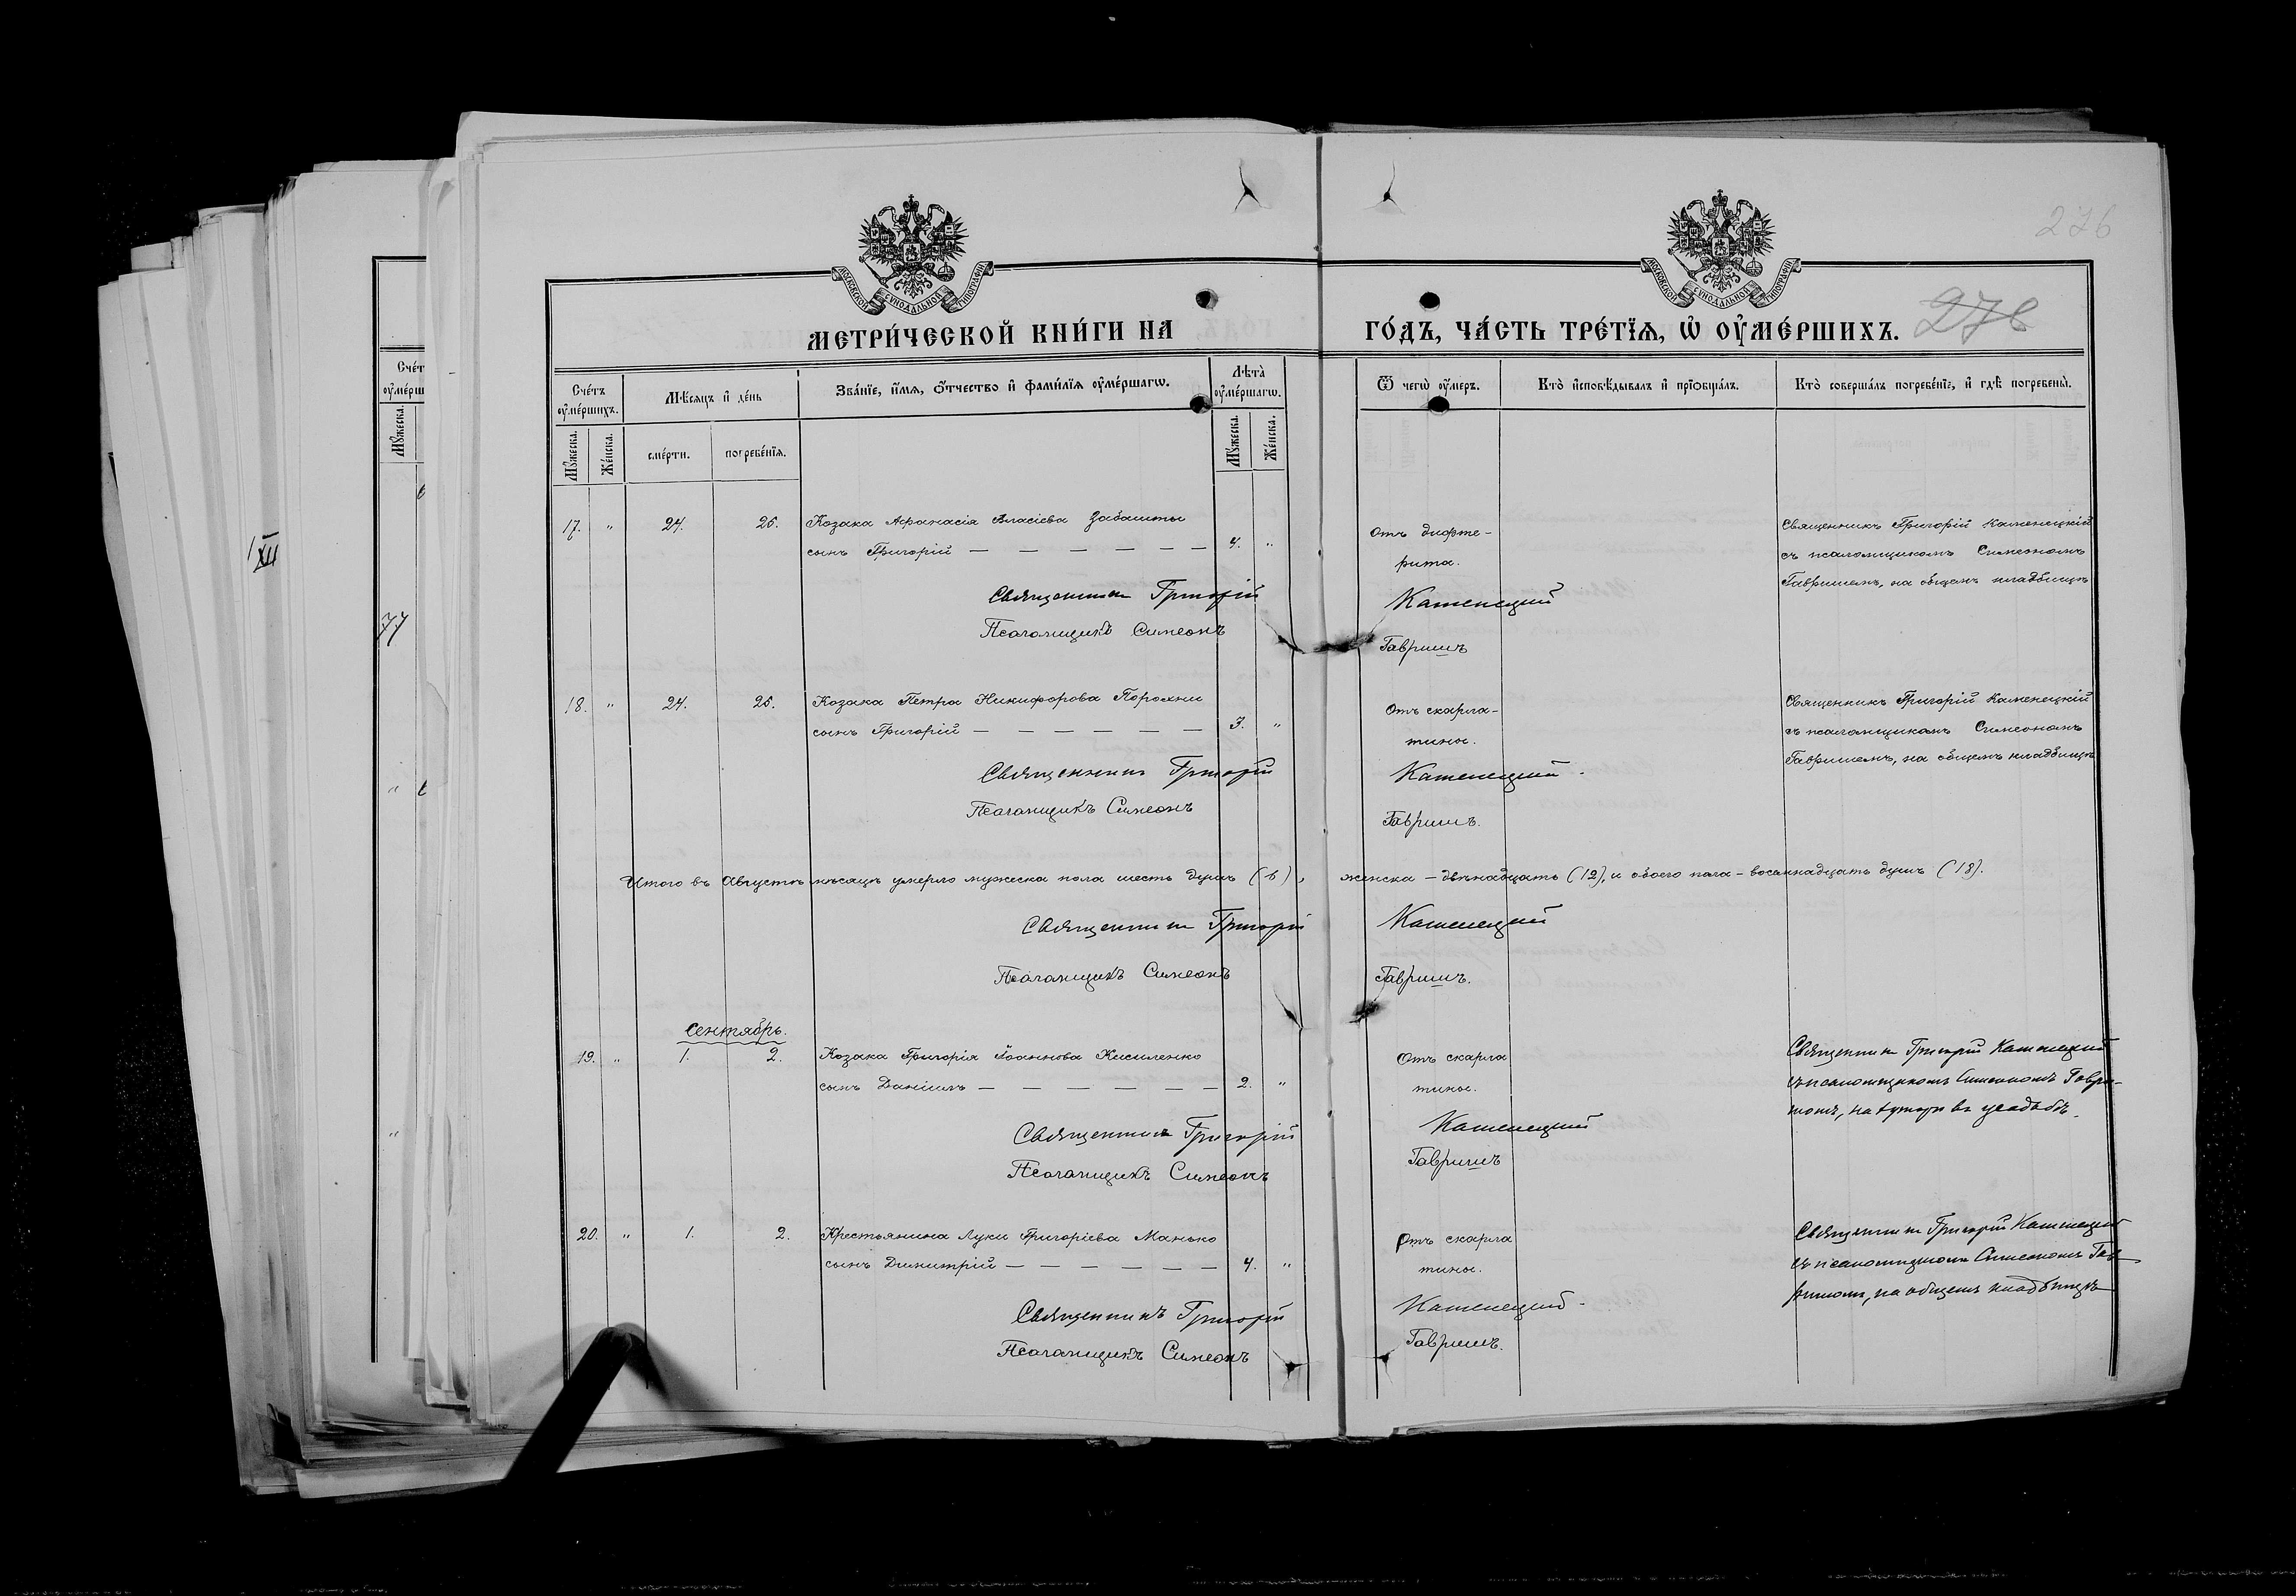 276
МОСКОВСКОЙ СѴНОДАЛЬНОЙ ТИПОГРАФІИ
МОСКОВСКОЙ СѴНОДАЛЬНОЙ ТИПОГРАФІИ
МЕТРИ́ЧЕСКОЙ КНИ́ГИ НА ГО́ДЪ, ЧА́СТЬ ТРЕ́ТЇѦ, Ѡ҆ ОУ҆МЕ́РШИХЪ.
276
Сче́тъ оу҆ме́ршихъ.
Мѣ́сѧцъ и҆ де́нь
Зва́нїе, и҆́мѧ, ѻ҆́тчество и҆ фами́лїѧ оу҆ме́ршагѡ.
Лѣ́та оу҆ме́ршагѡ.
Ѿ чегѡ̀ оу҆́меръ.
Кто̀ и҆сповѣ́дывалъ и҆ прїѡбща́лъ.
Кто̀ соверша́лъ погребе́нїе, и҆ гдѣ̀ погребены̀.
Мꙋ́жеска.
Же́нска.
сме́рти.
погребе́нїѧ.
Мꙋ́жеска.
Же́нска.
17. " 24. 25. Козака Афанасія Власіева Забашты
сынъ Григорій — — — — — — 4. "
Отъ дифте-
рита.
Священникъ Григорій Каменецкій
съ псаломщикомъ Симеономъ
Гавришемъ, на общемъ кладбищѣ
Священникъ Григорій Каменецкій
Псаломщикъ Симеонъ Гавришъ
18. " 24. 25. Козака Петра Никифорова Порохни
сынъ Григорій — — — — — — 3. "
Отъ скарла-
тины.
Священникъ Григорій Каменецкій
съ псаломщикомъ Симеономъ
Гавришемъ, на общемъ кладбищѣ
Священникъ Григорій Каменецкій.
Псаломщикъ Симеонъ Гавришъ.
Итого въ Августѣ мѣсяцѣ умерло мужеска пола шесть душъ (6), женска — двѣнадцать (12), и обоего пола — восемнадцать душъ (18).
Священникъ Григорій Каменецкій
Псаломщикъ Симеонъ Гавришъ.
Сентябрь.
19. " 1. 2. Козака Григорія Іоаннова Кисиленко
сынъ Даніилъ — — — — — — 2. "
Отъ скарла
тины.
Священникъ Григорій Каменецкій
съ псаломщикомъ Симеономъ Гаври-
шомъ, на хуторѣ въ усадьбѣ.
Священникъ Григорій Каменецкій
Псаломщикъ Симеонъ Гавришъ
20. " 1. 2. Крестьянина Луки Григоріева Манько
сынъ Димитрій — — — — — — 4. "
Отъ скарла
тины.
Священникъ Григорій Каменецкій
съ псаломщикомъ Симеономъ Гав
ришомъ, на общемъ кладбищѣ
Священникъ Григорій Каменецкій.
Псаломщикъ Симеонъ Гавришъ.
Сче́тъ
Мꙋ́жеска.
77
XII